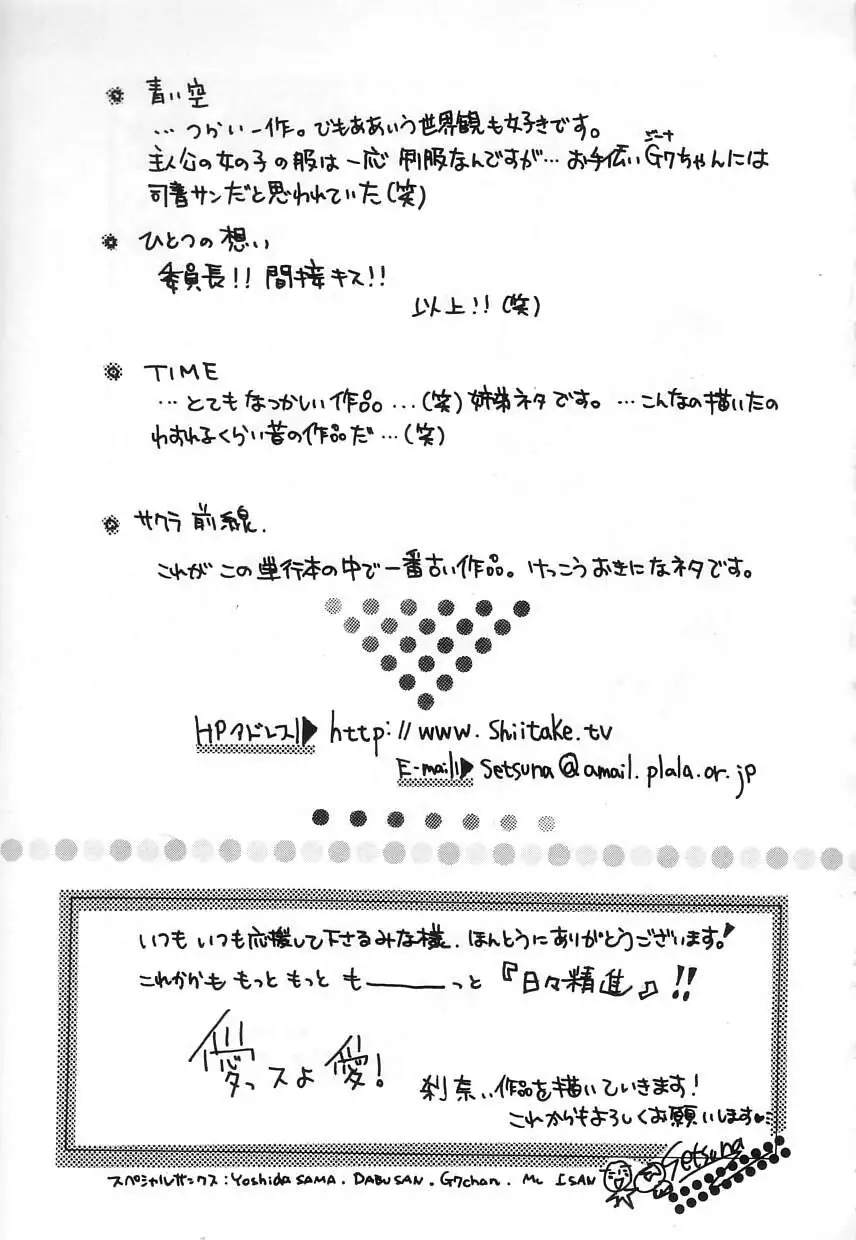 青い空
…つらい一作。でもああいう世界観も好きです。
ジーナ
主人公の女の子の服は一応制服なんですが…お手伝いG7ちゃんには
司書サンだと思われていた(笑)
ひとつの想い
委員長!!間接キス!!
以上!!(笑)
TIME
…とてもなつかしい作品…(笑)姉弟ネタです。…こんなの描いたの
わすれるくらい昔の作品だ…(笑)
サクラ前線.
これがこの単行本の中で一番古い作品。けっこうおきになネタです。
HPアドレス▶ http://www.shiitake.tv
E-mail▶ setsuna@amail.plala.or.jp
いつもいつも応援して下さるみな様、ほんとうにありがとうございます!
これからも もっと もっと も――っと『日々精進』!!
愛っスよ愛!
刹奈、、作品を描いていきます!
これからもよろしくお願いします♥
Setsuna
スペシャルサンクス:Yoshida SAMA. DABU SAN. G7chan. Mc ISAN